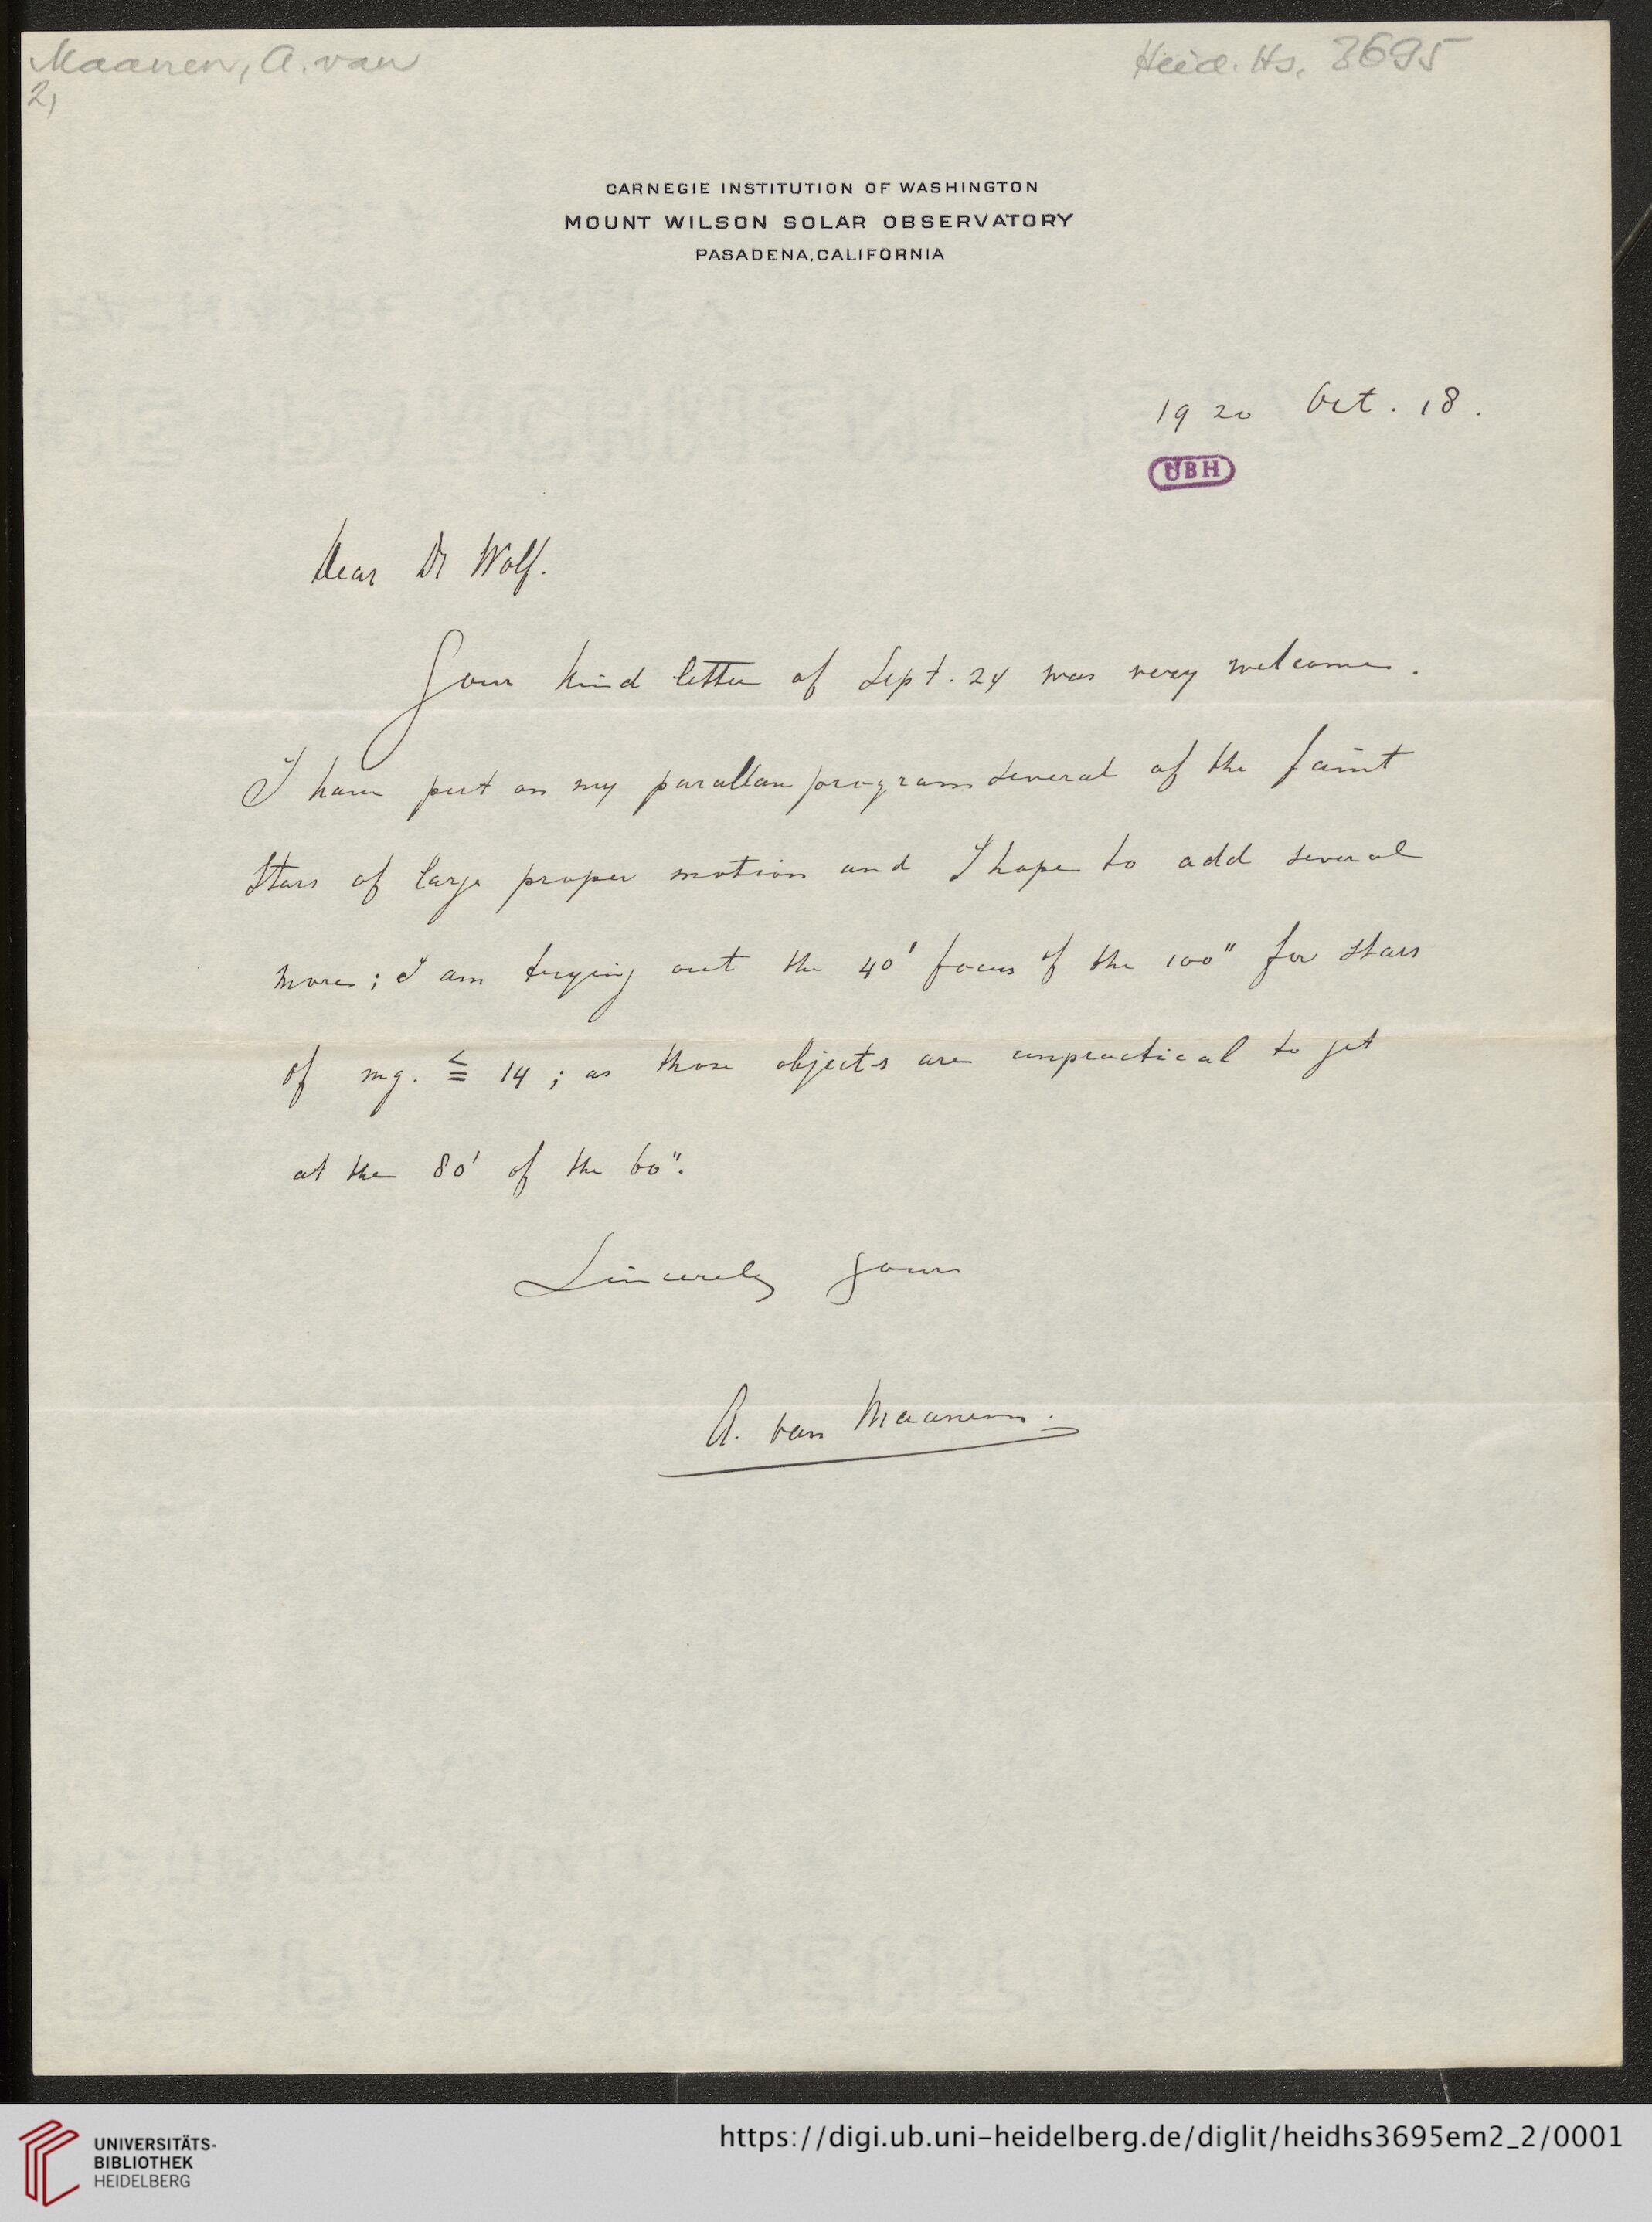 Maanen, A. van
2,
Heid. Hs. 3695
CARNEGIE INSTITUTION OF WASHINGTON
MOUNT WILSON SOLAR OBSERVATORY
PASADENA, CALIFORNIA
1920 Oct. 18.
UBH
Dear Dr Wolf.
Your kind letter of Sept. 24 was very welcome.
I have put on my parallax program several of the faint
stars of large proper motion and I hope to add several
more; I am trying out the 40' focus of the 100" for stars
of mg. ≦ 14; as those objects are unpractical to get
at the 80' of the 60".
Sincerely yours
A. van Maanen.
UNIVERSITÄTS-
BIBLIOTHEK
HEIDELBERG
https://digi.ub.uni-heidelberg.de/diglit/heidhs3695em2_2/0001